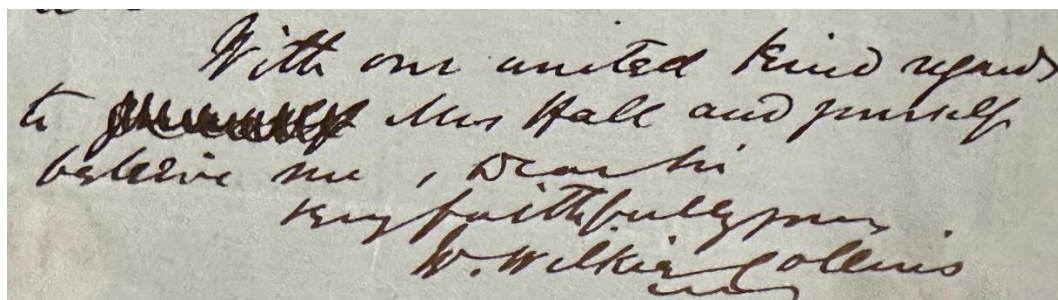 With our united kind regards
to Mrs Hall and yourself
believe me, Dear Sir
very faithfully yours
W. Wilkie Collins